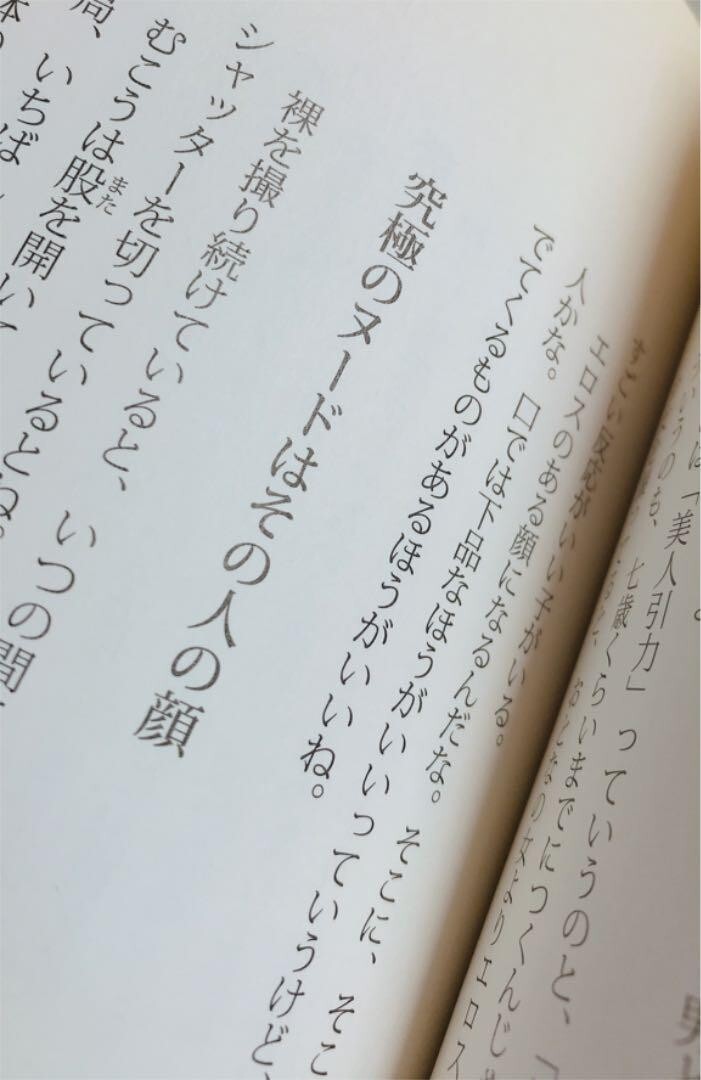 は「美人引力」っていうのと、「
いうのも、七歳くらいまでにつくんじ
おとなの女よりエロス
すごい反応がいい子がいる。
エロスのある顔になるんだな。そこに、そこ
人かな。口では下品なほうがいいっていうけど、
でてくるものがあるほうがいいね。
究極のヌードはその人の顔
裸を撮り続けていると、いつの間
シャッターを切っているとね。
むこうは股を開いて
局、いちば